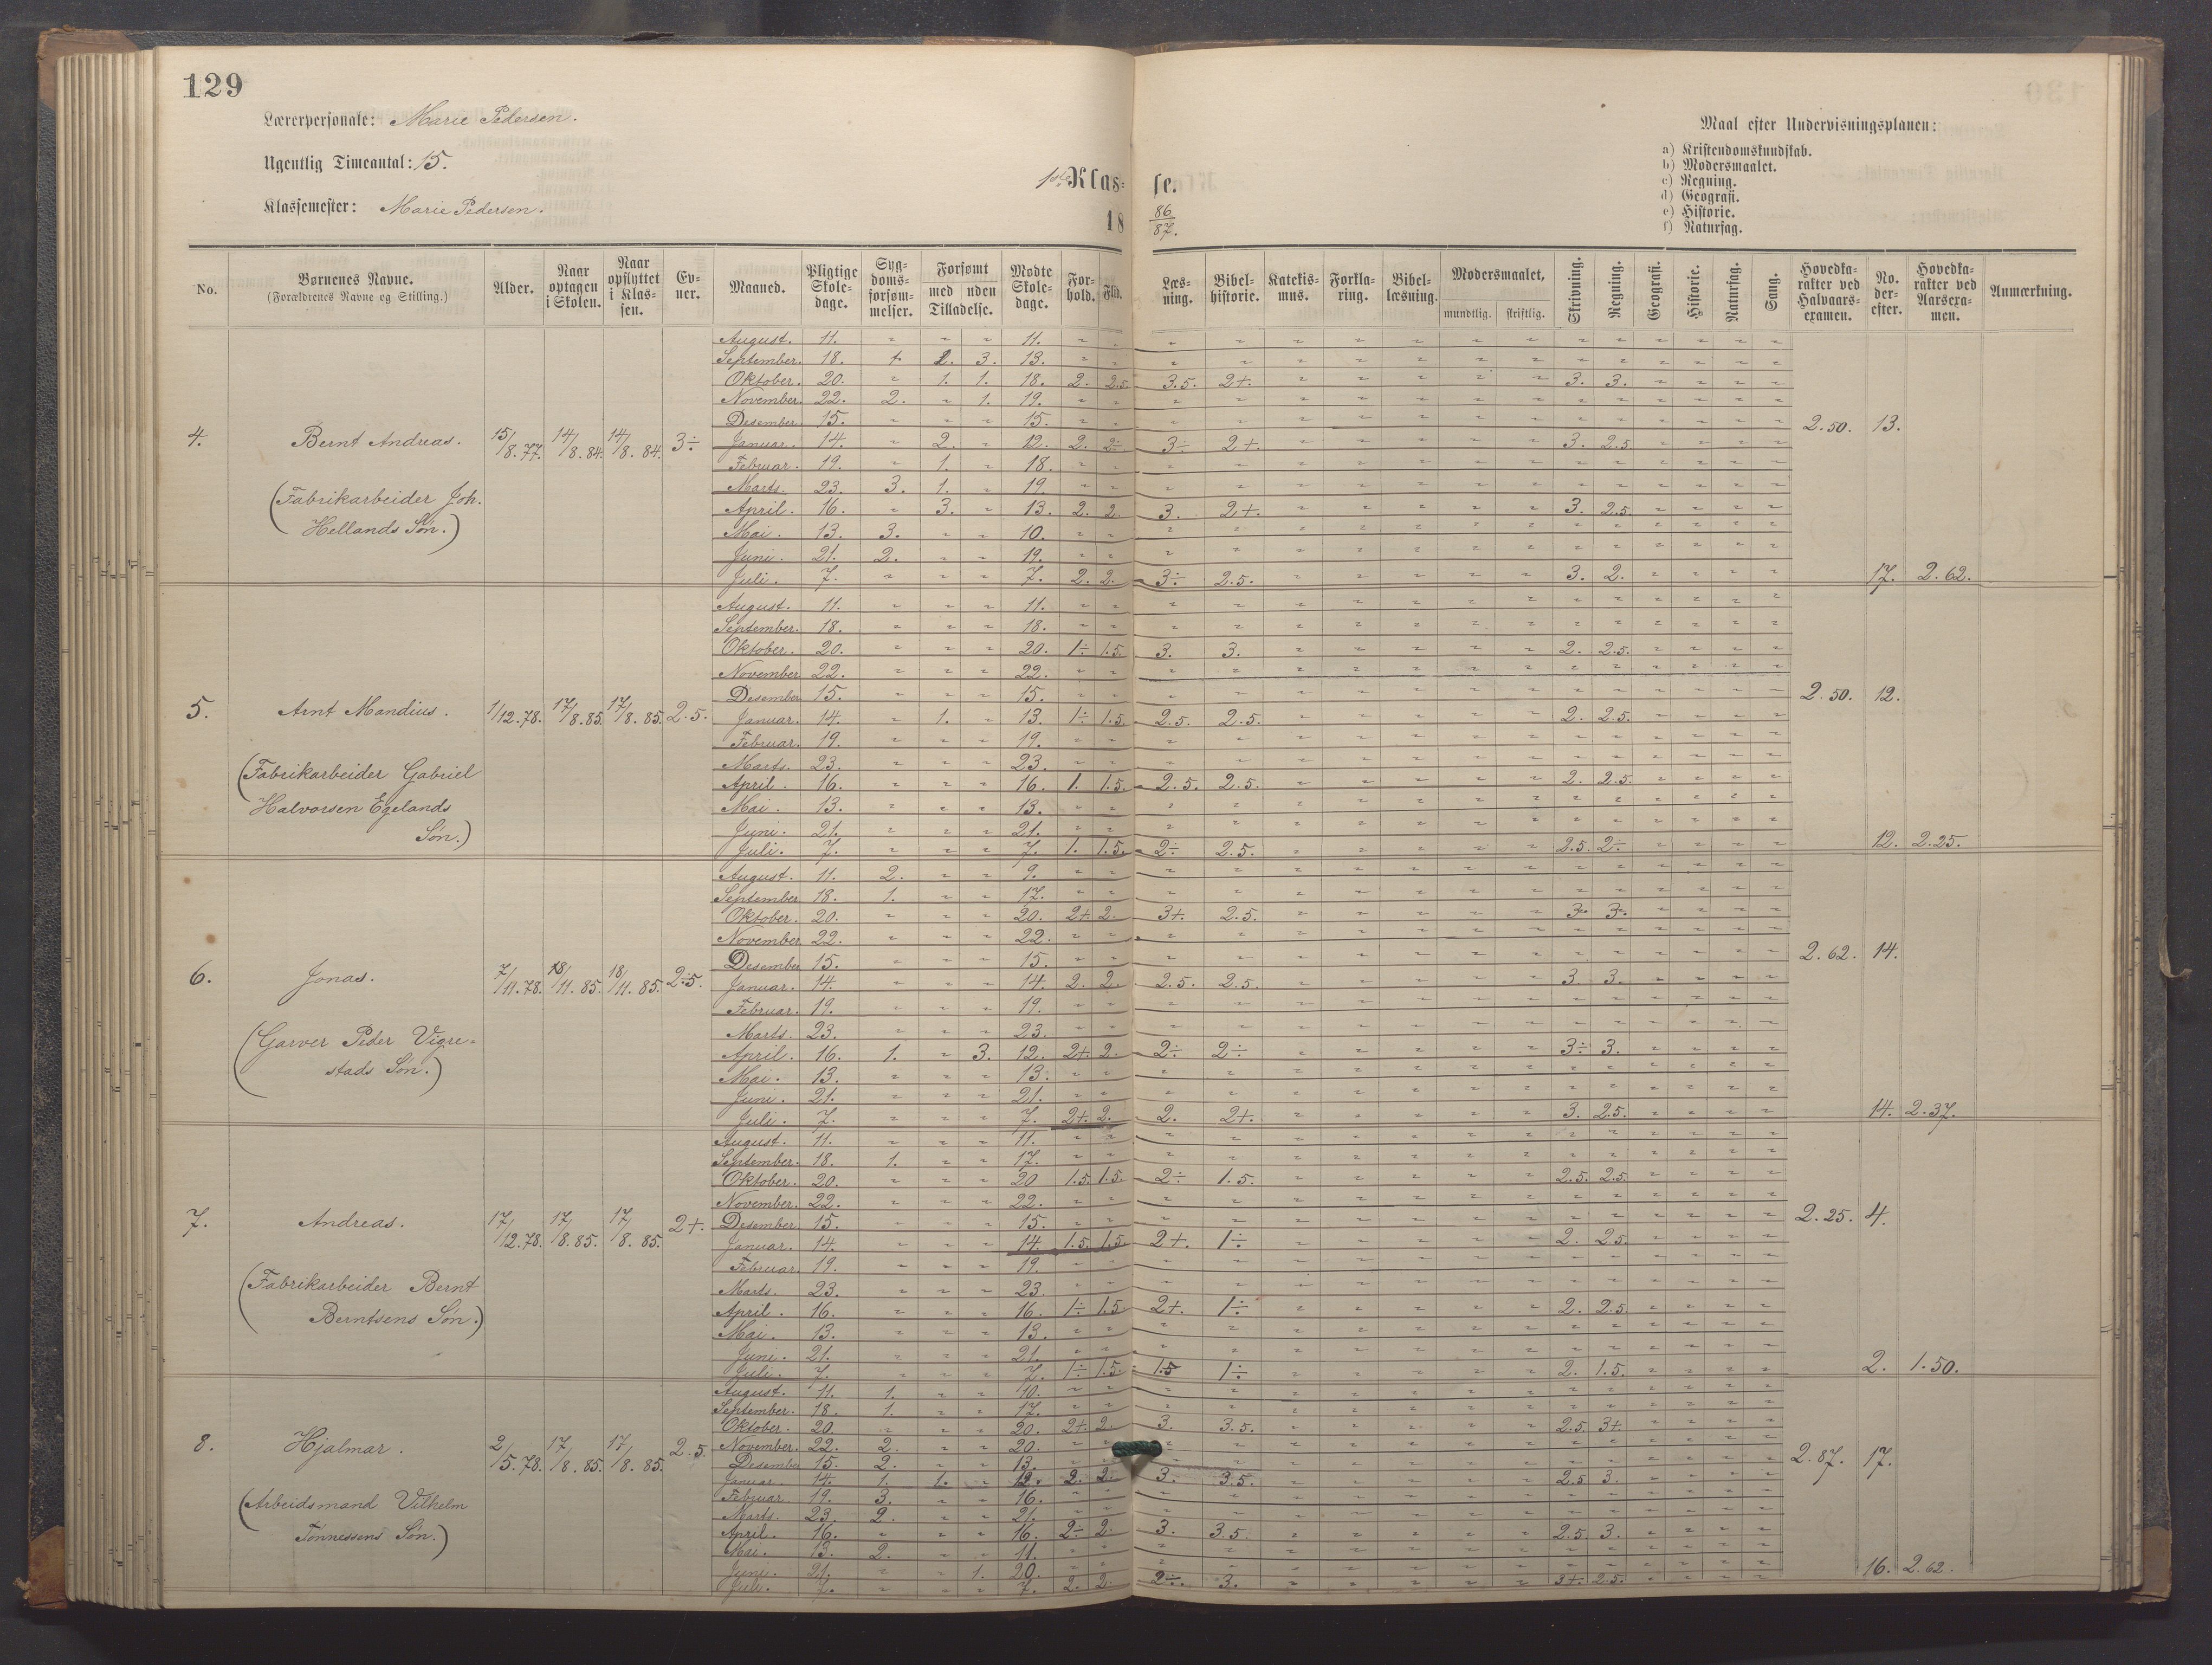 129
Lærerpersonale: Marie Pedersen.
Ugentlig Timeantal: 15.
Klassemester: Marie Pedersen.
1ste Klas= se.
18 86/87.
Maal efter Undervisningsplanen:
a) Kristendomskundskab.
b) Modersmaalet.
c) Regning.
d) Geografi.
e) Historie.
f) Naturfag.
No. Børnenes Navne. (Forældrenes Navne og Stilling.) Alder. Naar optagen i Skolen. Naar opflyttet i Klassen. Evner. Maaned. Pligtige Skoledage. Sygdomsforsømmelser. Forsømt med uden Tilladelse. Mødte Skoledage. Forhold. Flid. Læsning. Bibelhistorie. Katekismus. Forklaring. Bibellæsning. Modersmaalet, mundtlig. skriftlig. Skrivning. Regning. Geografi. Historie. Naturfag. Sang. Hovedkarakter ved Halvaarsexamen. No. derefter. Hovedkarakter ved Aarsexamen. Anmærkning.
4. Bernt Andreas. 15/8.77. 14/8.84. 14/8.84. 3÷ 2.50. 13.
(Fabrikarbeider Joh.
Hellands Søn.)
August. 11. " " " 11.
September. 18. 1 1. 3. 13.
Oktober. 20. " 1. 1. 18. 2. 2.5. 3.5. 2+. 3. 3.
November. 22. 2. " 1. 19.
Desember. 15. " " " 15.
Januar. 14. " 2. " 12. 2. 2÷ 3÷ 2+. 3. 2.5
Februar. 19. " 1. " 18.
Marts. 23. 3. 1. " 19.
April. 16. " 3. " 13. 2. 2. 3. 2+. 3. 2.5.
Mai. 13. 3. " " 10.
Juni. 21. 2. " " 19.
Juli. 7. " " " 7. 2. 2. 3÷ 2.5. 3. 2. 17. 2.62.
5. Arnt Mandius. 1/12.78. 17/8.85. 17/8.85. 2.5. 2.50. 12.
(Fabrikarbeider Gabriel
Halvorsen Egelands
Søn.)
August. 11. " " " 11.
September. 18. " " " 18.
Oktober. 20. " " " 20. 1÷ 1.5. 3. 3. 2. 2.5.
November. 22. " " " 22.
Desember 15. " " " 15.
Januar. 14. " 1. " 13. 1÷ 1.5. 2.5. 2.5. 2. 2.5.
Februar. 19. " " " 19.
Marts. 23. " " " 23.
April. 16. " " " 16. 1. 1.5. 2.5. 2.5. 2. 2.5.
Mai. 13. " " " 13.
Juni. 21. " " " 21.
Juli. 7. " " " 7. 1. 1.5. 2÷ 2.5. 2.5. 2÷ 12. 2.25.
6. Jonas. 7/11.78. 18/11.85. 18/11.85. 2.5. 2.62. 14.
(Garver Peder Vigre=
stads Søn.)
August. 11. 2. " " 9.
September 18. 1. " " 17.
Oktober. 20. " " " 20. 2+ 2. 3+. 2.5. 3. 3.
November 22. " " " 22.
Desember 15. " " " 15.
Januar. 14. " " " 14. 2. 2. 2.5. 2.5. 3. 3.
Februar. 19. " " " 19.
Marts. 23. " " " 23.
April. 16. 1. " 3. 12. 2+. 2. 2÷ 2÷ 3÷ 3.
Mai. 13. " " " 13.
Juni. 21. " " " 21.
Juli. 7. " " " 7. 2+ 2. 2. 2+. 3. 2.5. 14. 2.37.
7. Andreas. 17/12.78. 17/8.85. 17/8.85. 2+. 2.25. 4.
(Fabrikarbeider Bernt
Berntsens Søn.)
August. 11. " " " 11.
September. 18. 1. " " 17.
Oktober. 20. " " " 20 1.5. 1.5. 2÷ 1.5. 2.5. 2.5.
November. 22. " " " 22.
Desember 15. " " " 15.
Januar. 14. " " " 14. 1.5. 1.5. 2+. 1÷ 2. 2.5.
Februar. 19. " " " 19.
Marts. 23. " " " 23.
April. 16. " " " 16. 1÷ 1.5 2+. 1÷ 2. 2.5.
Mai. 13. " " " 13.
Juni. 21. " " " 21.
Juli. 7. " " " 7. 1÷ 1.5. 1.5 1÷ 2. 1.5. 2. 1.50.
8. Hjalmar. 2/5.78. 17/8.85. 17/8.85. 2.5. 2.87. 17.
(Arbeidsmand Vilhelm
Tønnessens Søn.)
August. 11. 1. " " 10.
September. 18. 1. " " 17.
Oktober. 20. " " " 20. 2+ 2. 3. 3.5. 2.5. 3+.
November. 22. 2. " " 20.
Desember 15. 2. " " 13.
Januar. 14. 1. 1. " 12. 2. 2. 3. 3.5. 2.5 3.
Februar. 19. 3. " " 16.
Marts. 23. 2. " " 21.
April. 16. " " " 16. 2÷ 2. 3. 3.5. 2.5. 3.
Mai. 13. 2. " " 11.
Juni. 21. " " 1. 20.
Juli. 7. " " " 7. 2. 2. 2÷. 3. 3+. 2.5. 16. 2.62.